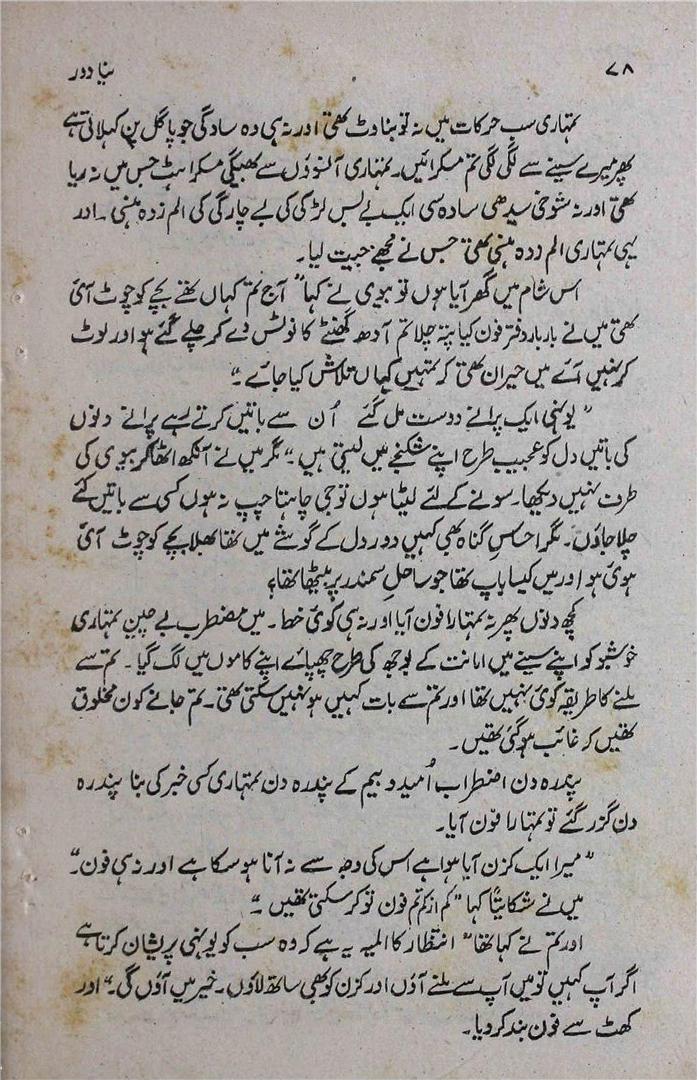 ۷۸ نیا دور
تمہاری سب حرکات میں نہ تو بناوٹ تھی اور نہ ہی وہ سادگی جو پاگل پن کہلاتی ہے
پھر میرے سینے سے لگی لگی تم مسکرائیں۔ تمہاری آنسوؤں سے بھیگی مسکراہٹ جس میں نہ ریا
تھی اور نہ شوخی سیدھی سادہ سی ایک بے بس لڑکی کی بے چارگی کی الم زدہ ہنسی۔ اور
یہی تمہاری الم زدہ ہنسی تھی جس نے مجھے جیت لیا۔
اس شام میں گھر آیا ہوں تو بیوی نے کہا "آج تم کہاں تھے بچے کو چوٹ آئی
تھی میں نے بار بار دفتر فون کیا پتہ چلا تم آدھ گھنٹے کا نوٹس دے کر چلے گئے ہو اور لوٹ
کر نہیں آئے میں حیران تھی کہ تمہیں کہاں تلاش کیا جائے۔"
"یونہی ایک پرانے دوست مل گئے اُن سے باتیں کرتے رہے پرانے دنوں
کی باتیں دل کو عجیب طرح اپنے شکنجے میں لیتی ہیں۔" مگر میں نے آنکھ اٹھا کر بیوی کی
طرف نہیں دیکھا۔ سونے کے لئے لیٹا ہوں تو جی چاہتا چپ نہ ہوں کسی سے باتیں کئے
چلا جاؤں۔ مگر احساسِ گناہ بھی کہیں دور دل کے گوشے میں تھا بھلا بچے کو چوٹ آئی
ہوئی ہو اور میں کیسا باپ تھا جو ساحلِ سمندر پر بیٹھا تھا؟
کچھ دنوں پھر نہ تمہارا فون آیا اور نہ ہی کوئی خط۔ میں مضطرب بے چین تمہاری
خوشبو کو اپنے سینے میں امانت کے بوجھ کی طرح چھپائے اپنے کاموں میں لگ گیا۔ تم سے
ملنے کا طریقہ کوئی نہیں تھا اور تم سے بات کہیں ہو نہیں سکتی تھی۔ تم جانے کون مخلوق
تھیں کہ غائب ہو گئی تھیں۔
پندرہ دن اضطراب اُمید و بیم کے پندرہ دن تمہاری کسی خبر کی بنا پندرہ
دن گزر گئے تو تمہارا فون آیا۔
"میرا ایک کزن آیا ہوا ہے اس کی وجہ سے نہ آنا ہو سکا ہے اور نہ ہی فون۔"
میں نے شکایتاً کہا "کم از کم تم فون تو کر سکتی تھیں۔"
اور تم نے کہا تھا "انتظار کا المیہ یہ ہے کہ وہ سب کو یونہی پریشان کرتا ہے
اگر آپ کہیں تو میں آپ سے ملنے آؤں اور کزن کو بھی ساتھ لاؤں۔ خیر میں آؤں گی۔" اور
کھٹ سے فون بند کر دیا۔